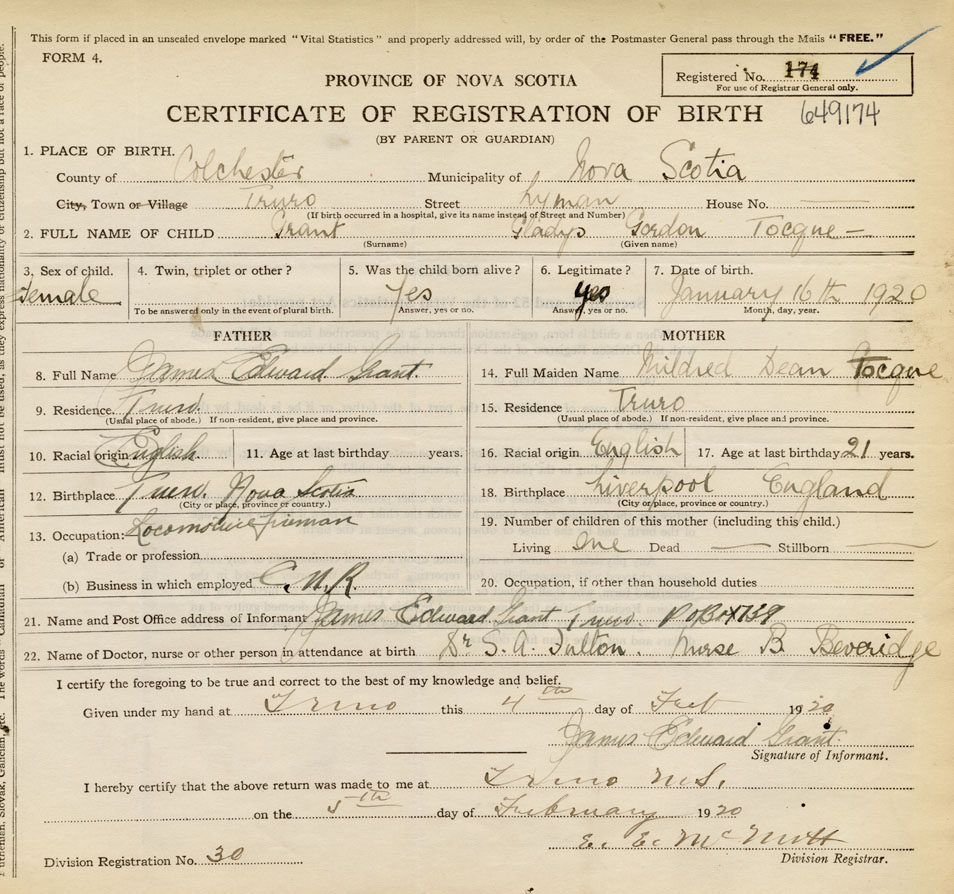 This form if placed in an unsealed envelope marked "Vital Statistics" and properly addressed will, by order of the Postmaster General pass through the Mails "FREE."
FORM 4.
Registered No. 174
For use of Registrar General only.
PROVINCE OF NOVA SCOTIA
CERTIFICATE OF REGISTRATION OF BIRTH 649174
(BY PARENT OR GUARDIAN)
1. PLACE OF BIRTH.
County of Colchester Municipality of Nova Scotia
City, Town or Village Truro Street Lyman House No.
(If birth occurred in a hospital, give its name instead of Street and Number)
2. FULL NAME OF CHILD Grant Gladys Gordon Tocque
(Surname) (Given name)
3. Sex of child. 4. Twin, triplet or other? 5. Was the child born alive? 6. Legitimate? 7. Date of birth.
Female Yes yes January 16th 1920
To be answered only in the event of plural birth. Answer, yes or no. Answer, yes or no. Month, day, year.
FATHER MOTHER
8. Full Name James Edward Grant. 14. Full Maiden Name Mildred Dean Tocque
9. Residence. Truro. 15. Residence Truro
(Usual place of abode.) If non-resident, give place and province. (Usual place of abode.) If non-resident, give place and province.
10. Racial origin English. 11. Age at last birthday years. 16. Racial origin English 17. Age at last birthday 21 years.
12. Birthplace Truro. Nova Scotia 18. Birthplace Liverpool England
(City or place, province or country.) (City or place, province or country.)
13. Occupation: Locomotive Fireman 19. Number of children of this mother (including this child.)
(a) Trade or profession Living One Dead Stillborn
(b) Business in which employed C.N.R. 20. Occupation, if other than household duties
21. Name and Post Office address of Informant James Edward Grant Truro. P O Box 739
22. Name of Doctor, nurse or other person in attendance at birth Dr S. A. Fulton. Nurse B Beveridge
I certify the foregoing to be true and correct to the best of my knowledge and belief.
Given under my hand at Truro this 4th day of Feb 1920
James Edward Grant.
Signature of Informant.
I hereby certify that the above return was made to me at Truro N.S.
on the 5th day of February 1920
E. E. McNutt
Division Registration No. 30 Division Registrar.